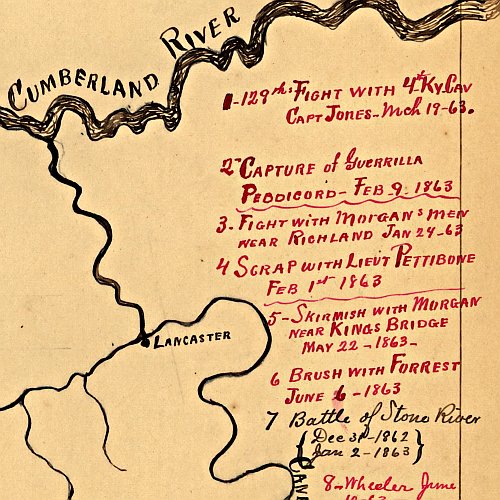 CUMBERLAND RIVER
1-129th's FIGHT WITH 4th KY. CAV
CAPT JONES-Mch 19-63.
2- CAPTURE of GUERRILLA
PEDDICORD- FEB 9-1863
3-FIGHT WITH MORGAN'S MEN
NEAR RICHLAND JAN 24-63
4 SCRAP WITH LIEUT PETTIBONE
FEB 1st 1863
5-SKIRMISH WITH MORGAN
NEAR KINGS BRIDGE
MAY 22-1863-
LANCASTER
6 BRUSH WITH FORREST
JUNE 6-1863
7 Battle of Stone River
{Dec 31-1862
Jan 2-1863}
8-Wheeler June